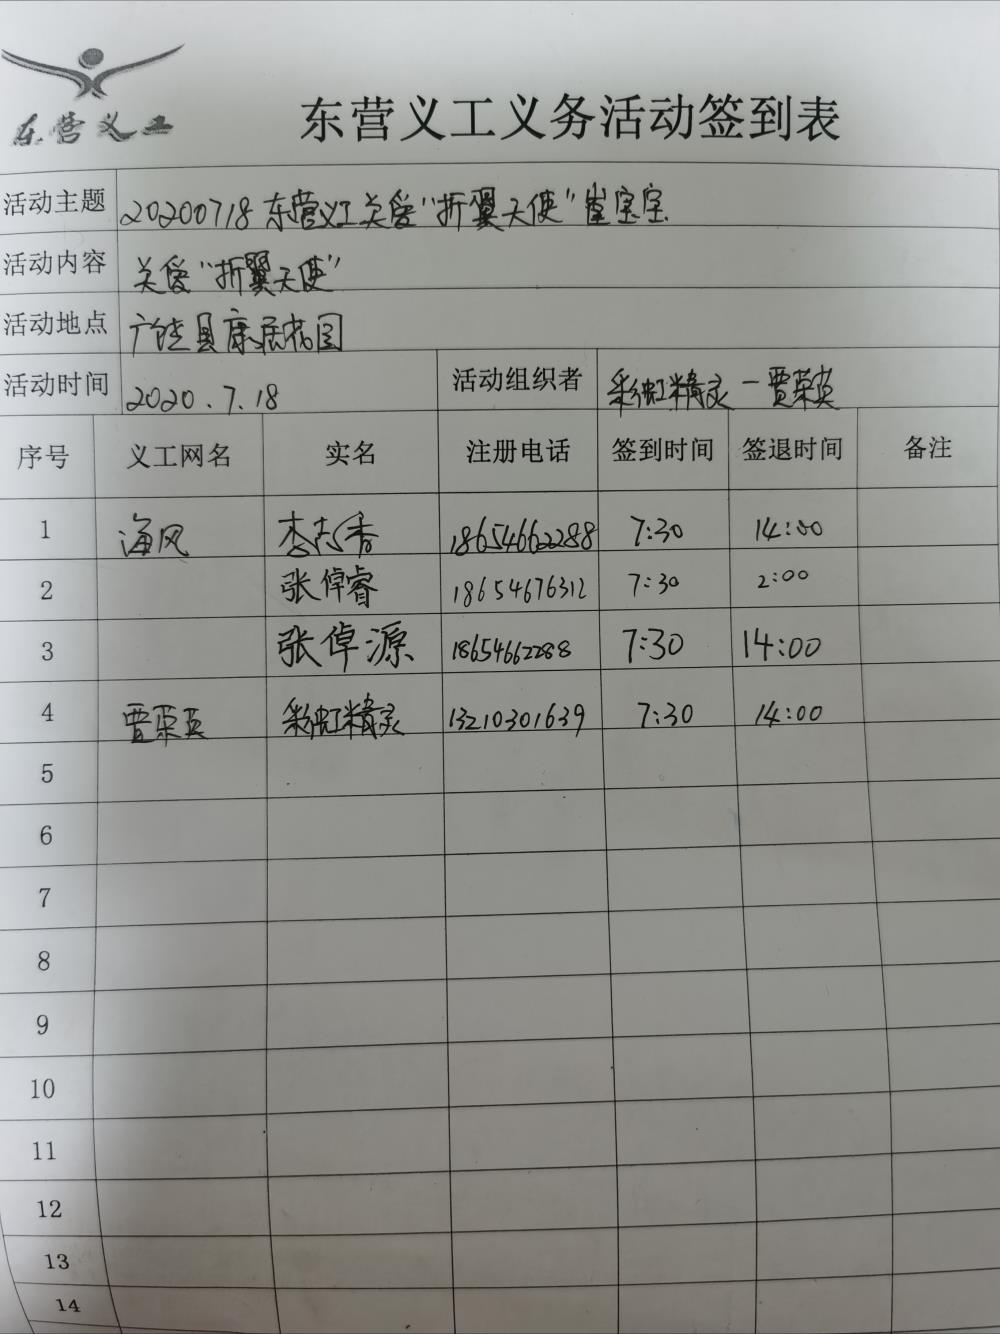 东营义工
东营义工义务活动签到表
活动主题 20200718东营义工关爱“折翼天使”崔宝宝
活动内容 关爱“折翼天使”
活动地点 广饶县康居花园
活动时间 2020.7.18 活动组织者 彩虹精灵-贾荣英
序号 义工网名 实名 注册电话 签到时间 签退时间 备注
1 海风 李志香 18654662288 7:30 14:00
2 张倬睿 18654676312 7:30 2:00
3 张倬源 18654662288 7:30 14:00
4 贾荣英 彩虹精灵 13210301639 7:30 14:00
5
6
7
8
9
10
11
12
13
14